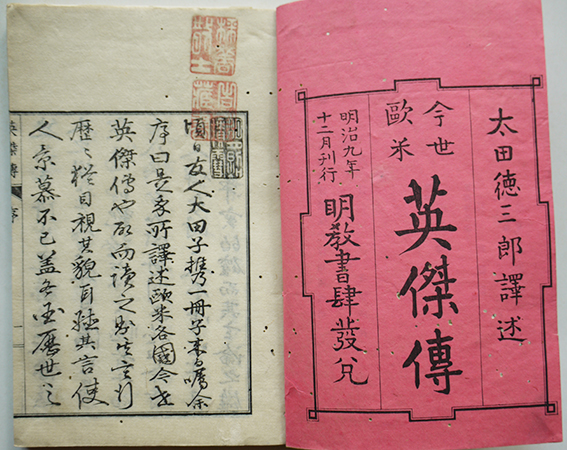 太田徳三郎譯述
今世
歐米
英傑傳
明治九年
十二月刊行
明教書肆發兌
頃日友人大田子携一冊子来嘱余
序曰是所譯述歐米各國今世
英傑傳也而讀之言行
歴々猶目視其貌耳聴其言使
人景慕不已蓋歴世之
英傑傳 序